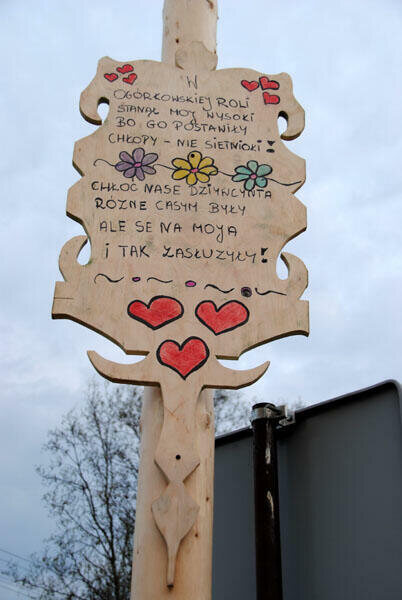 W
OGÓRKOWSKIEJ ROLI
STANĄŁ MOJ WYSOKI
BO GO POSTAWIŁY
CHŁOPY - NIE SIETNIOKI!
CHŁOC NASE DZIYWCYNTA
RÓZNE CASYM BYŁY
ALE SE NA MOJA
I TAK ZASŁUZYŁY!